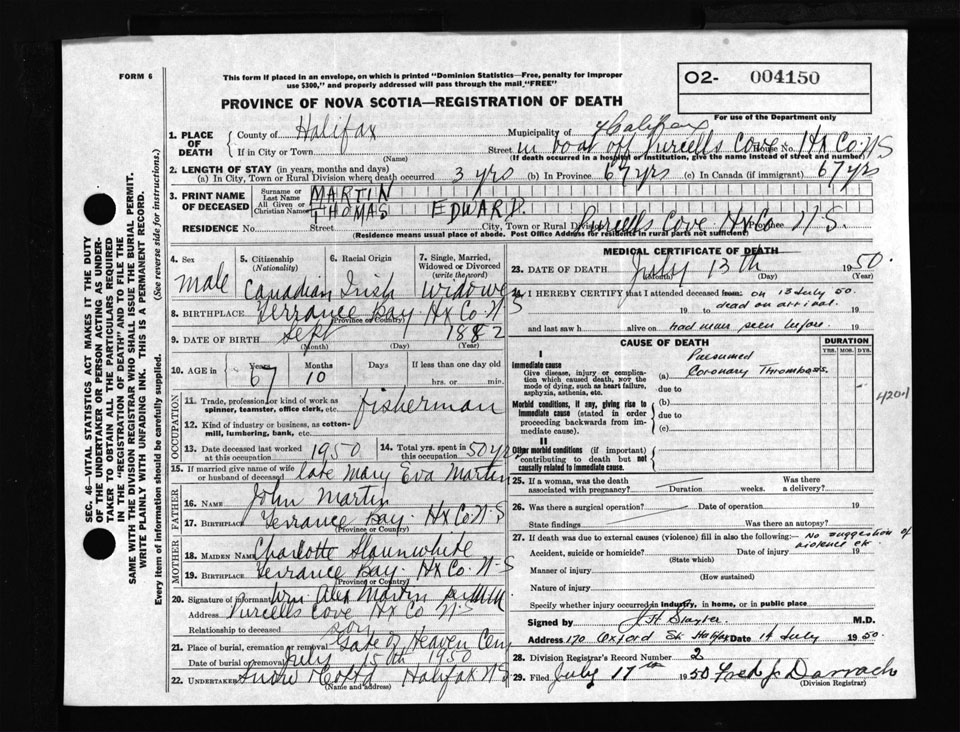 FORM 6
This form if placed in an envelope, on which is printed "Dominion Statistics—Free, penalty for improper
use $300," and properly addressed will pass through the mail "FREE"
O2- 004150
For use of the Department only
PROVINCE OF NOVA SCOTIA—REGISTRATION OF DEATH
1. PLACE OF DEATH { County of Halifax Municipality of Halifax
If in City or Town (Name) Street in boat off Purcells Cove House No. Hx Co. N S
(If death occurred in a hospital or institution, give the name instead of street and number)
2. LENGTH OF STAY (in years, months and days)
(a) In City, Town or Rural Division where death occurred 3 yrs (b) In Province 67 yrs (c) In Canada (if immigrant) 67 yrs
3. PRINT NAME OF DECEASED { Surname or Last Name MARTIN
All Given or Christian Names THOMAS EDWARD.
RESIDENCE No. Street City, Town or Rural Division Purcells Cove Hx Co. N-S. Province
(Residence means usual place of abode. Post Office Address for residents in rural parts not sufficient)
4. Sex male
5. Citizenship (Nationality) Canadian
6. Racial Origin Irish
7. Single, Married, Widowed or Divorced (write the word) Widower
8. BIRTHPLACE Terrance Bay Hx Co. N S
(Province or Country)
9. DATE OF BIRTH Sept 1882
(Month) (Day) (Year)
10. AGE in { Years 67 Months 10 Days If less than one day old
hrs. or min.
OCCUPATION
11. Trade, profession or kind of work as spinner, teamster, office clerk, etc. fisherman
12. Kind of industry or business, as cotton-mill, lumbering, bank, etc.
13. Date deceased last worked at this occupation 1950
14. Total yrs. spent in this occupation 50 yrs
15. If married give name of wife or husband of deceased late Mary Eva Martin
FATHER
16. NAME John Martin
17. BIRTHPLACE Terrance Bay. Hx Co N-S
(Province or Country)
MOTHER
18. MAIDEN NAME Charlotte Slaunwhite
19. BIRTHPLACE Terrance Bay. Hx Co. N-S
(Province or Country)
20. Signature of informant Wm Alex Martin per
Address Purcells Cove Hx Co N S
Relationship to deceased son
21. Place of burial, cremation or removal Gate of Heaven Cem
Date of burial or removal July 15th 1950
22. UNDERTAKER Snow Halifax N S
(Name and address)
MEDICAL CERTIFICATE OF DEATH
23. DATE OF DEATH July 13th 1950.
(Month) (Day) (Year)
24. I HEREBY CERTIFY that I attended deceased from: on 13 July 50.
19 to dead on arrival. 19
and last saw h alive on had man seen before. 19
CAUSE OF DEATH
DURATION
YRS. MOS. DYS.
I
Immediate cause
Give disease, injury or complication which caused death, not the mode of dying, such as heart failure, asphyxia, asthenia, etc.
(a) Presumed Coronary Thrombosis.
due to
Morbid conditions, if any, giving rise to immediate cause (stated in order proceeding backwards from immediate cause).
(b)
due to
(c)
II
Other morbid conditions (if important) contributing to death but not causally related to immediate cause.
4201
25. If a woman, was the death associated with pregnancy? Duration weeks. Was there a delivery?
26. Was there a surgical operation? Date of operation 19
State findings Was there an autopsy?
27. If death was due to external causes (violence) fill in also the following:— No suggestion of violence etc.
Accident, suicide or homicide? Date of injury 19
(State which)
Manner of injury
(How sustained)
Nature of injury
Specify whether injury occurred in industry, in home, or in public place
Signed by J H Slayter M.D.
Address 170 Oxford St Halifax Date 14 July 1950.
28. Division Registrar's Record Number 2
29. Filed July 17th 1950 Fred J. Darrach
(Division Registrar)
SEC. 46—VITAL STATISTICS ACT MAKES IT THE DUTY
OF THE UNDERTAKER OR PERSON ACTING AS UNDER-
TAKER TO OBTAIN ALL THE PARTICULARS REQUIRED
IN THE "REGISTRATION OF DEATH" AND TO FILE THE
SAME WITH THE DIVISION REGISTRAR WHO SHALL ISSUE THE BURIAL PERMIT.
WRITE PLAINLY WITH UNFADING INK. THIS IS A PERMANENT RECORD.
Every item of information should be carefully supplied. (See reverse side for instructions.)